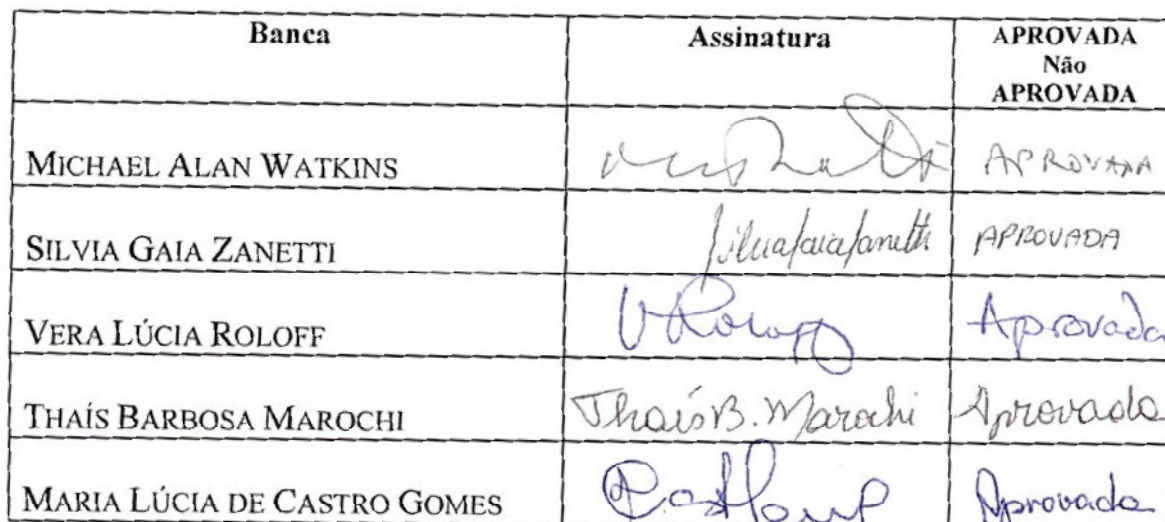 Banca Assinatura APROVADA
Não
APROVADA
MICHAEL ALAN WATKINS APROVADA
SILVIA GAIA ZANETTI Silvia Gaia Zanetti APROVADA
VERA LÚCIA ROLOFF V Roloff Aprovada
THAÍS BARBOSA MAROCHI Thaís B. Marochi Aprovada
MARIA LÚCIA DE CASTRO GOMES Aprovada